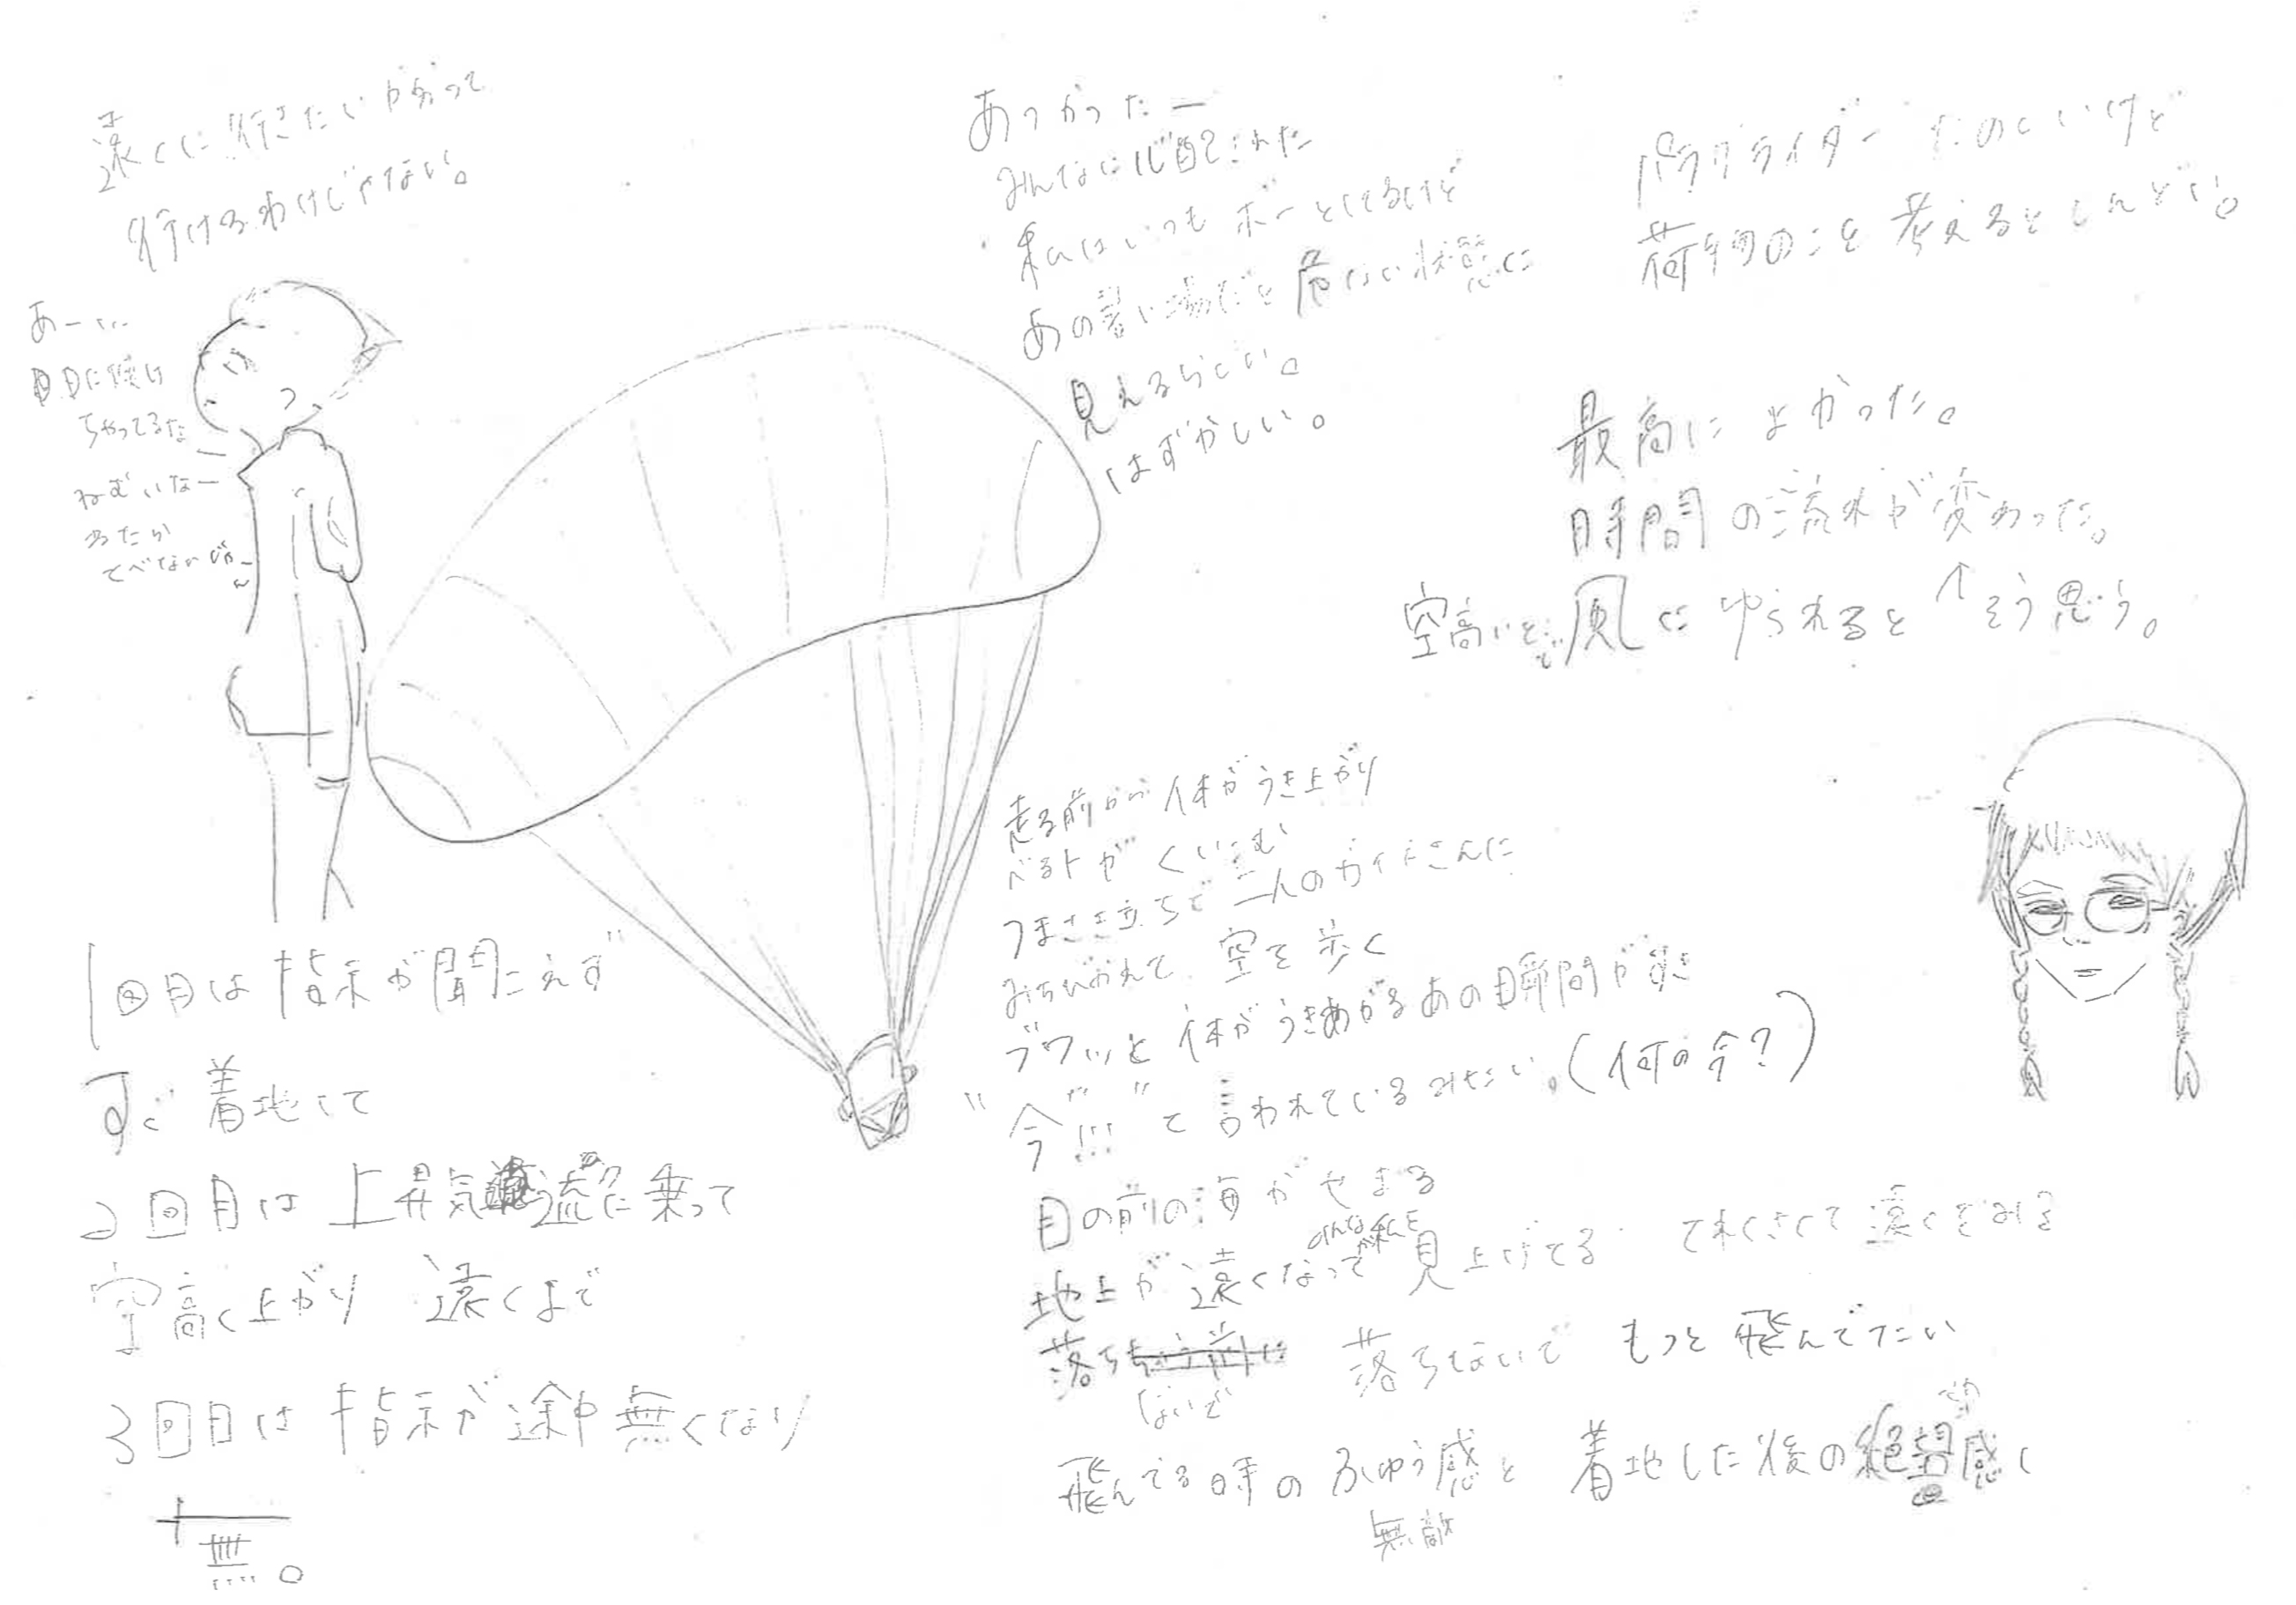 遠くに行きたいからって
行けるわけじゃない。
あーに
日に焼け
ちゃってるな
ねむいなー
とべないじゃーん
あつかったー
みんなに心配された
私はいつもボーとしてるけど
あの暑い場だと危ない状態に
見えるらしい。
はずかしい。
パラグライダーたのしいけど
荷物のこと考えるとしんどい。
最高によかった。
時間の流れが変わった。
空高いとこで風にゆられると↑そう思う。
1回目は指示が聞こえず
すぐ着地して
2回目は上昇気流に乗って
空高く上がり 遠くまで
3回目は指示が途中無くなり
無。
走る前から体がうき上がり
ベルトがくいこむ
つまさき立ちで二人のガイドさんに
みちびかれて 空を歩く
ブワッと体がうきあがるあの瞬間がすき
"今!!!"て言われているみたい。(何の今?)
目の前の海がせまる
地上が遠くなって みんなが私を 見上げてる てれくさくて遠くをみる
落ちちゃう前に ないで 落ちないで もっと飛んでたい
飛んでる時のふゆう感と 着地した後の絶望感
無敵